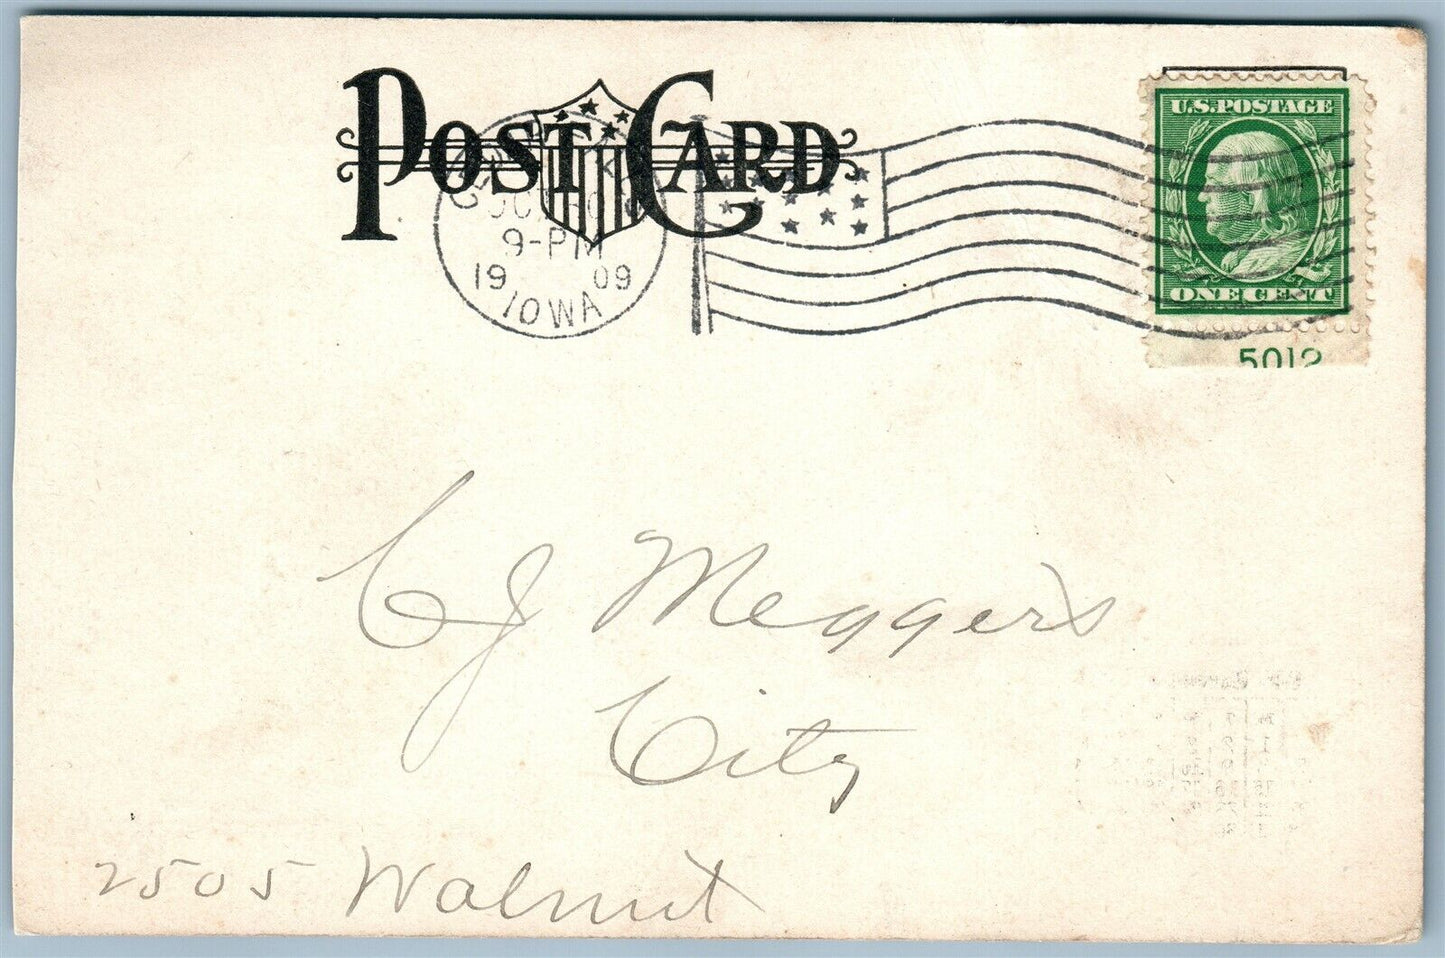 POST CARD
9-PM
19 09
IOWA
U.S. POSTAGE
ONE CENT
5012
C J Meggers
City
2505 Walnut